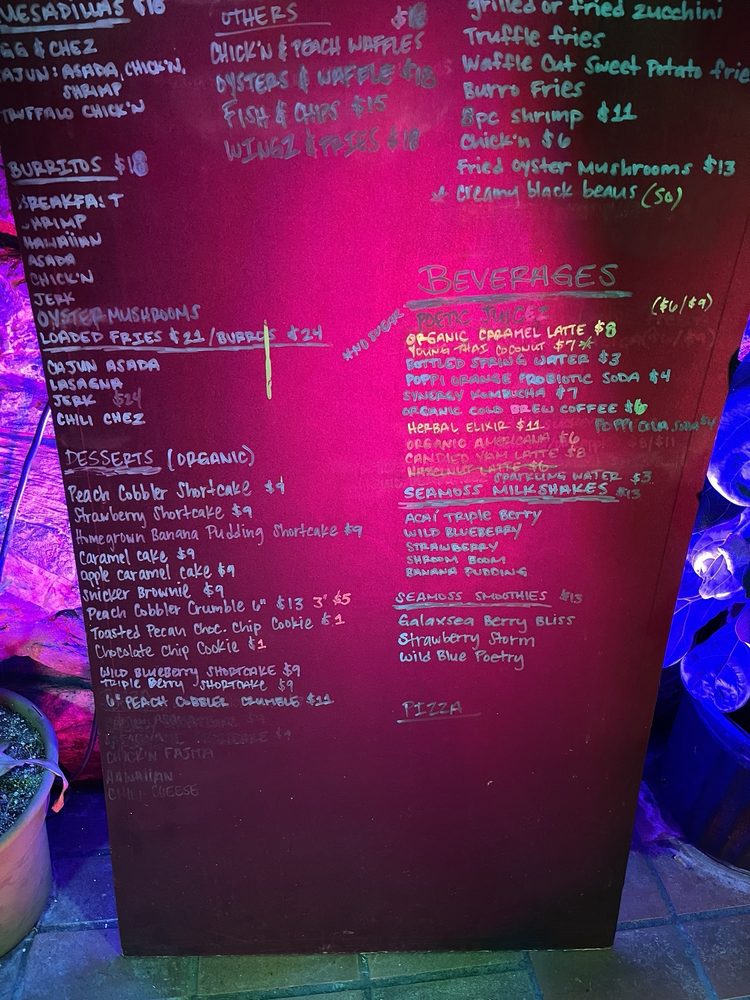 UESADILLAS $18
GG & CHEZ
AJUN: ASADA, CHICK'N,
SHRIMP
TRUFFALO CHICK'N
BURRITOS $18
BREAKFA T
SHRIMP
HAWAIIAN
ASADA
CHICK'N
JERK
OYSTER MUSHROOMS
LOADED FRIES $21 / BURROS $24
CAJUN ASADA
LASAGNA
JERK $24
CHILI CHEZ
DESSERTS (ORGANIC)
Peach Cobbler Shortcake $9
Strawberry Shortcake $9
Homegrown Banana Pudding Shortcake $9
Caramel cake $9
apple caramel cake $9
Snicker Brownie $9
Peach Cobbler Crumble 6" $13 3" $5
Toasted Pecan Choc. Chip Cookie $1
Chocolate Chip Cookie $1
WILD BLUEBERRY SHORTCAKE $9
TRIPLE BERRY SHORTCAKE $9
6" PEACH COBBLER CRUMBLE $11
CHICK'N FAJITA
HAWAIIAN
CHILI CHEESE
OTHERS $18
CHICK'N & PEACH WAFFLES
OYSTERS & WAFFLE $18
FISH & CHIPS $15
WINGZ & FRIES $18
grilled or fried zucchini
Truffle fries
Waffle Cut Sweet Potato fries
Burro Fries
8pc shrimp $11
Chick'n $6
Fried Oyster Mushrooms $13
* Creamy black beans (SO)
BEVERAGES
POETIC JUICEZ ($6/$9)
#NO SUGAR
ORGANIC CARAMEL LATTE $8
YOUNG THAI COCONUT $7*
BOTTLED SPRING WATER $3
POPPI ORANGE PROBIOTIC SODA $4
SYNERGY KOMBUCHA $7
ORGANIC COLD BREW COFFEE $6
HERBAL ELIXIR $11 POPPI COLA SODA $4
ORGANIC AMERICANA $6 $8/$11
CANDIED YAM LATTE $8
HAZELNUT LATTE $6
SPARKLING WATER $3
SEAMOSS MILKSHAKES $13
ACAÍ TRIPLE BERRY
WILD BLUEBERRY
STRAWBERRY
SHROOM BOOM
BANANA PUDDING
SEAMOSS SMOOTHIES $13
Galaxsea Berry Bliss
Strawberry Storm
Wild Blue Poetry
PIZZA